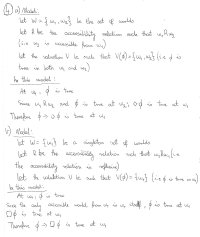 4) a) Model:
Let W = {w₁, w₂} be the set of worlds
let R be the accessibility relation such that w₁Rw₂
(i.e w₂ is accessible from w₁)
let the valuation V be such that V(φ) = {w₁, w₂} (i.e φ is
true in both w₁ and w₂)
In this model:
At w₁, φ is true
Since w₁Rw₂ and φ is true at w₂, ◇φ is true at w₁
Therefore φ → ◇φ is true at w₁
b) Model:
let W = {w₁} be a singleton set of worlds
let R be the accessibility relation such that w₁Rw₁ (i.e
the accessibility relation is reflexive)
let the valuation V be such that V(φ) = {w₁} (i.e φ is true in w₁)
In this model:
At w₁, φ is true
Since the only accessible world from w₁ is w₁ φ is true at w₁
□φ is true at w₁
Therefore φ → □φ is true at w₁